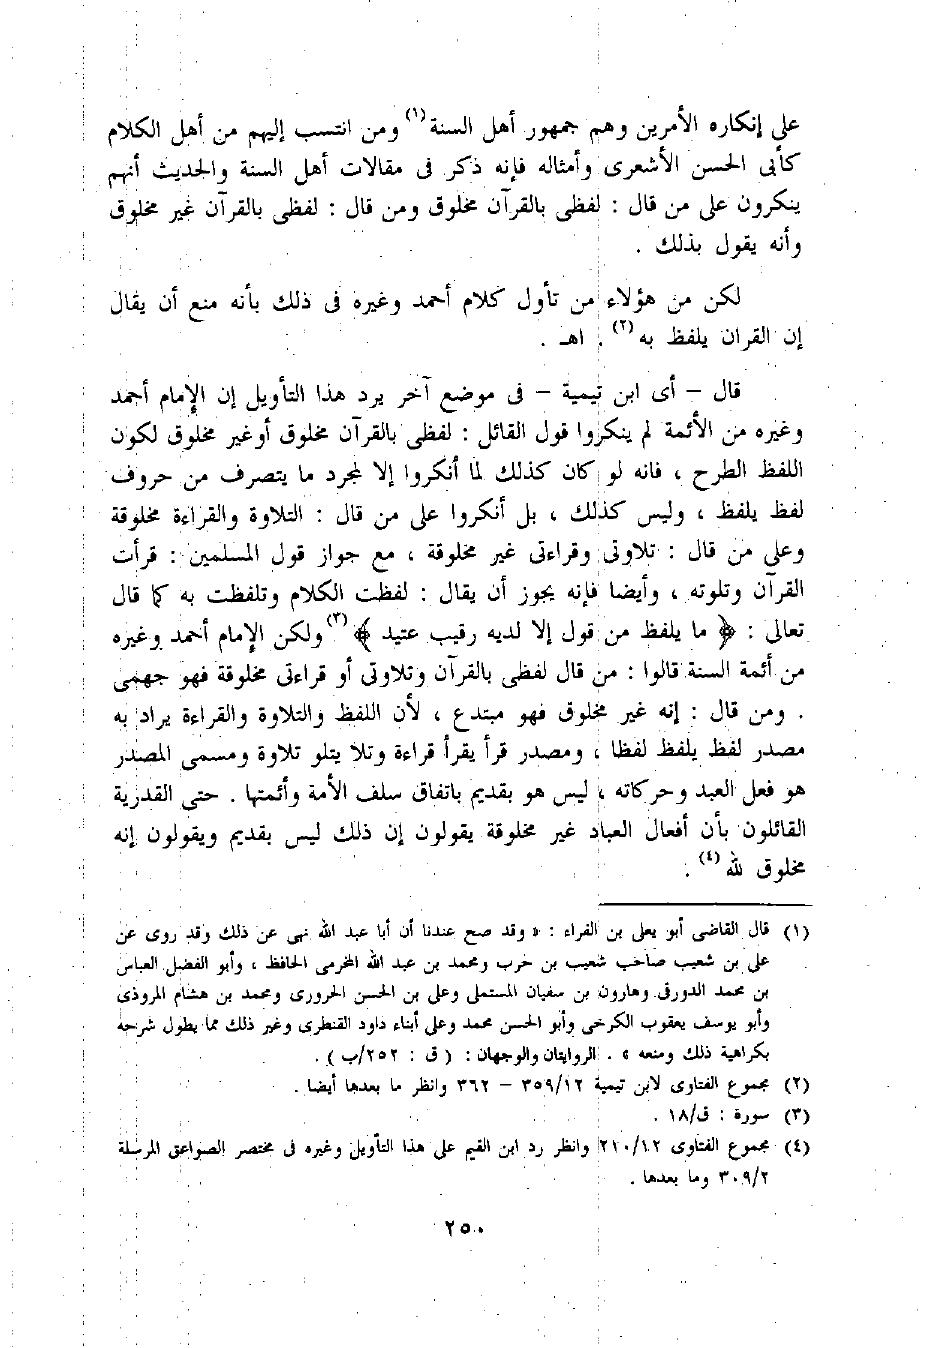 على إنكاره الأمرين وهم جمهور أهل السنة(١) ومن انتسب إليهم من أهل الكلام
كأبى الحسن الأشعرى وأمثاله فإنه ذكر فى مقالات أهل السنة والحديث أنهم
ينكرون على من قال : لفظى بالقرآن مخلوق ومن قال : لفظى بالقرآن غير مخلوق
وأنه يقول بذلك .
لكن من هؤلاء من تأول كلام أحمد وغيره فى ذلك بأنه منع أن يقال
إن القران يلفظ به(٢) . اهـ .
قال – أى ابن تيمية – فى موضع آخر يرد هذا التأويل إن الإمام أحمد
وغيره من الأئمة لم ينكروا قول القائل : لفظى بالقرآن مخلوق أوغير مخلوق لكون
اللفظ الطرح ، فانه لو كان كذلك لما أنكروا إلا لمجرد ما يتصرف من حروف
لفظ يلفظ ، وليس كذلك ، بل أنكروا على من قال : التلاوة والقراءة مخلوقة
وعلى من قال : تلاوتى وقراءتى غير مخلوقة ، مع جواز قول المسلمين : قرأت
القرآن وتلوته ، وأيضا فإنه يجوز أن يقال : لفظت الكلام وتلفظت به كما قال
تعالى : ﴿ ما يلفظ من قول إلا لديه رقيب عتيد ﴾(٣) ولكن الإمام أحمد وغيره
من أئمة السنة قالوا : من قال لفظى بالقرآن وتلاوتى أو قراءتى مخلوقة فهو جهمى
. ومن قال : إنه غير مخلوق فهو مبتدع ، لأن اللفظ والتلاوة والقراءة يراد به
مصدر لفظ يلفظ لفظا ، ومصدر قرأ يقرأ قراءة وتلا يتلو تلاوة ومسمى المصدر
هو فعل العبد وحركاته ، ليس هو بقديم باتفاق سلف الأمة وأئمتها . حتى القدرية
القائلون بأن أفعال العباد غير مخلوقة يقولون إن ذلك ليس بقديم ويقولون إنه
مخلوق لله(٤) .
(١) قال القاضى أبو يعلى بن الفراء : « وقد صح عندنا أن أبا عبد الله نهى عن ذلك وقد روى عن
على بن شعيب صاحب شعيب بن حرب ومحمد بن عبد الله المخرمى الحافظ ، وأبو الفضل العباس
بن محمد الدورقى وهارون بن سفيان المستملى وعلى بن الحسن الحرورى ومحمد بن هشام المروذى
وأبو يوسف يعقوب الكرخى وأبو الحسن محمد وعلى أبناء داود القنطرى وغير ذلك مما يطول شرحه
بكراهية ذلك ومنعه » . الروايتان والوجهان : ( ق : ٢٥٢/ب ) .
(٢) مجموع الفتاوى لابن تيمية ٣٥٩/١٢ – ٣٦٢ وانظر ما بعدها أيضا .
(٣) سورة : ق/١٨ .
(٤) مجموع الفتاوى ٢١٠/١٢ وانظر رد ابن القيم على هذا التأويل وغيره فى مختصر الصواعق المرسلة
٣٠٩/٢ وما بعدها .
٢٥٠